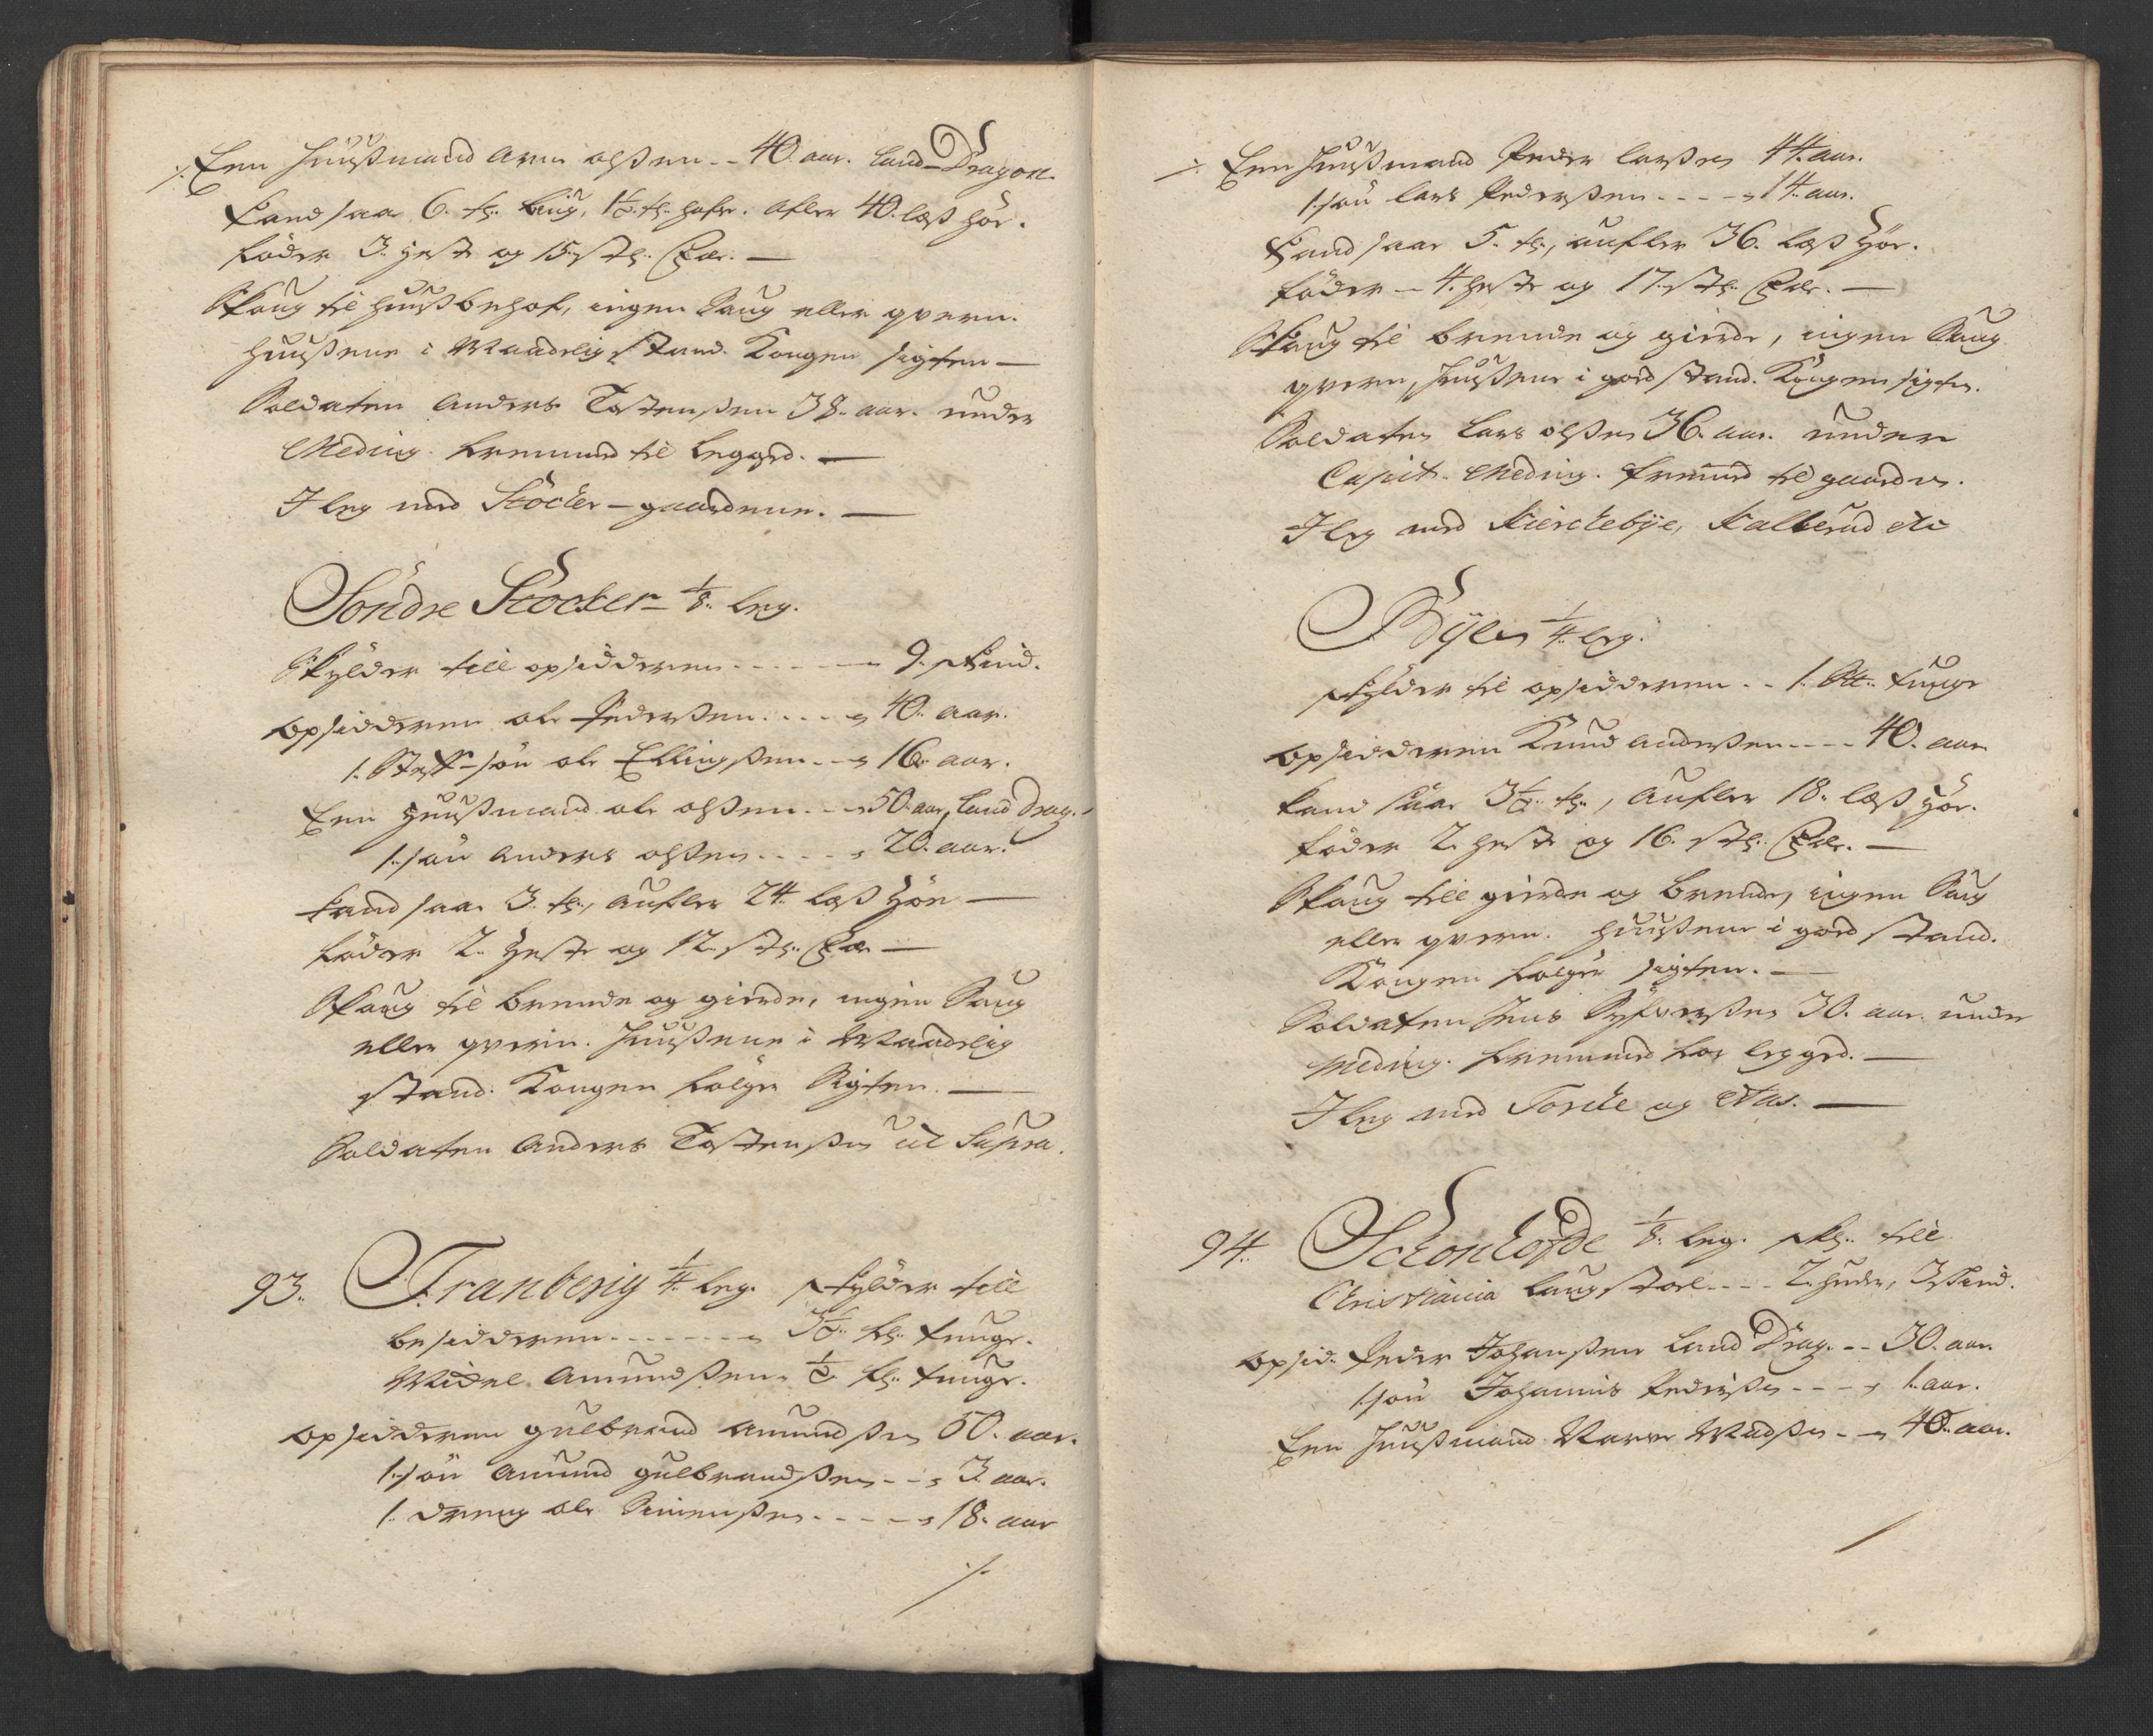 ./. Een Huusmand Arne olßen -- 40. aar. Land-Dragon.
Kand saae 6. tr. biug, 1½. tr. hafre. Afler 40. læs höe.
föder 3. heste og 15. stk. Fæe. —
Skoug til huusbehof, ingen Saug eller qvern.
huußene i Maadelig stand. Kongen sigten —
Soldaten Anders Tostenßen 38. aar. under
Meding. kremmed til Legged. —
I leg med Stöcker-gaardene. —
Söndre Stöcker ⅛. leg.
Skylder till opsidderen ------ 9. skind.
Opsidderen ole Pederßen ---- 40. aar.
1. Stef-sön ole Ellingßen --- 16. aar.
Een Huusmand ole olßen --- 50. aar, Land Drag.
1. sön Anders olßen ---- 20. aar.
Kand saae 3. tr., aufler 24. læs höe —
föder 2. heste og 12. stk. Fæe —
Skoug til brende og gierde, ingen Saug
eller qvern. Huußene i Maadelig
stand. Kongen fölger Sigten. —
Soldaten Anders Tostenßen ut Supra.
93. Tranberig ¼. leg. skylder till
besidderen ------- 3½. tunge.
Amundßen ½ tunge.
Opsidderen gulbrand Amundßen 50. aar.
1. sön Amund gulbrandßen --- 3. aar.
1. dreng ole Simenßen ----- 18. aar
./.
./. Een Huusmand Peder larßen 44. aar.
1. sön lars Pederßen ---- 14. aar.
Kand saae 5. tr., aufler 36. læs höe.
föder - 4. heste og 17. stk. Fæe. —
Skoug til brende og gierde, ingen Saug
qvern, Huußene i god stand. Kongen sigten.
Soldaten Lars olßen 36. aar. under
Capit. Meding. fremmed til gaarden.
I leg med Kierckebÿe, Kalkerud etc
Bÿlen ¼. leg.
skylder til opsidderen -- 1. tunge
Opsidderen Knud Anderßen ---- 40. aar.
Kand saae 3½. tr., Aufler 18. læs höe.
föder 2. heste og 16. stk. Fæe. —
Skoug till gierde og brende, ingen Saug
eller qvern. huußene i god stand.
Kongen fölger sigten. —
Soldaten Jens Syfverßen 30. aar. under
Meding. fremmed for legged. —
I leg med Torcke og Aas. —
94. ⅛. leg. skl. till
Christiania Laugstoel ---- 2. huder, 3 skind.
Opsid. Peder Johanßen Land Drag. -- 30. aar.
1. sön Johannis Pederßen ---- 1. aar.
Een Huusmand Madßen -- 40. aar.
/